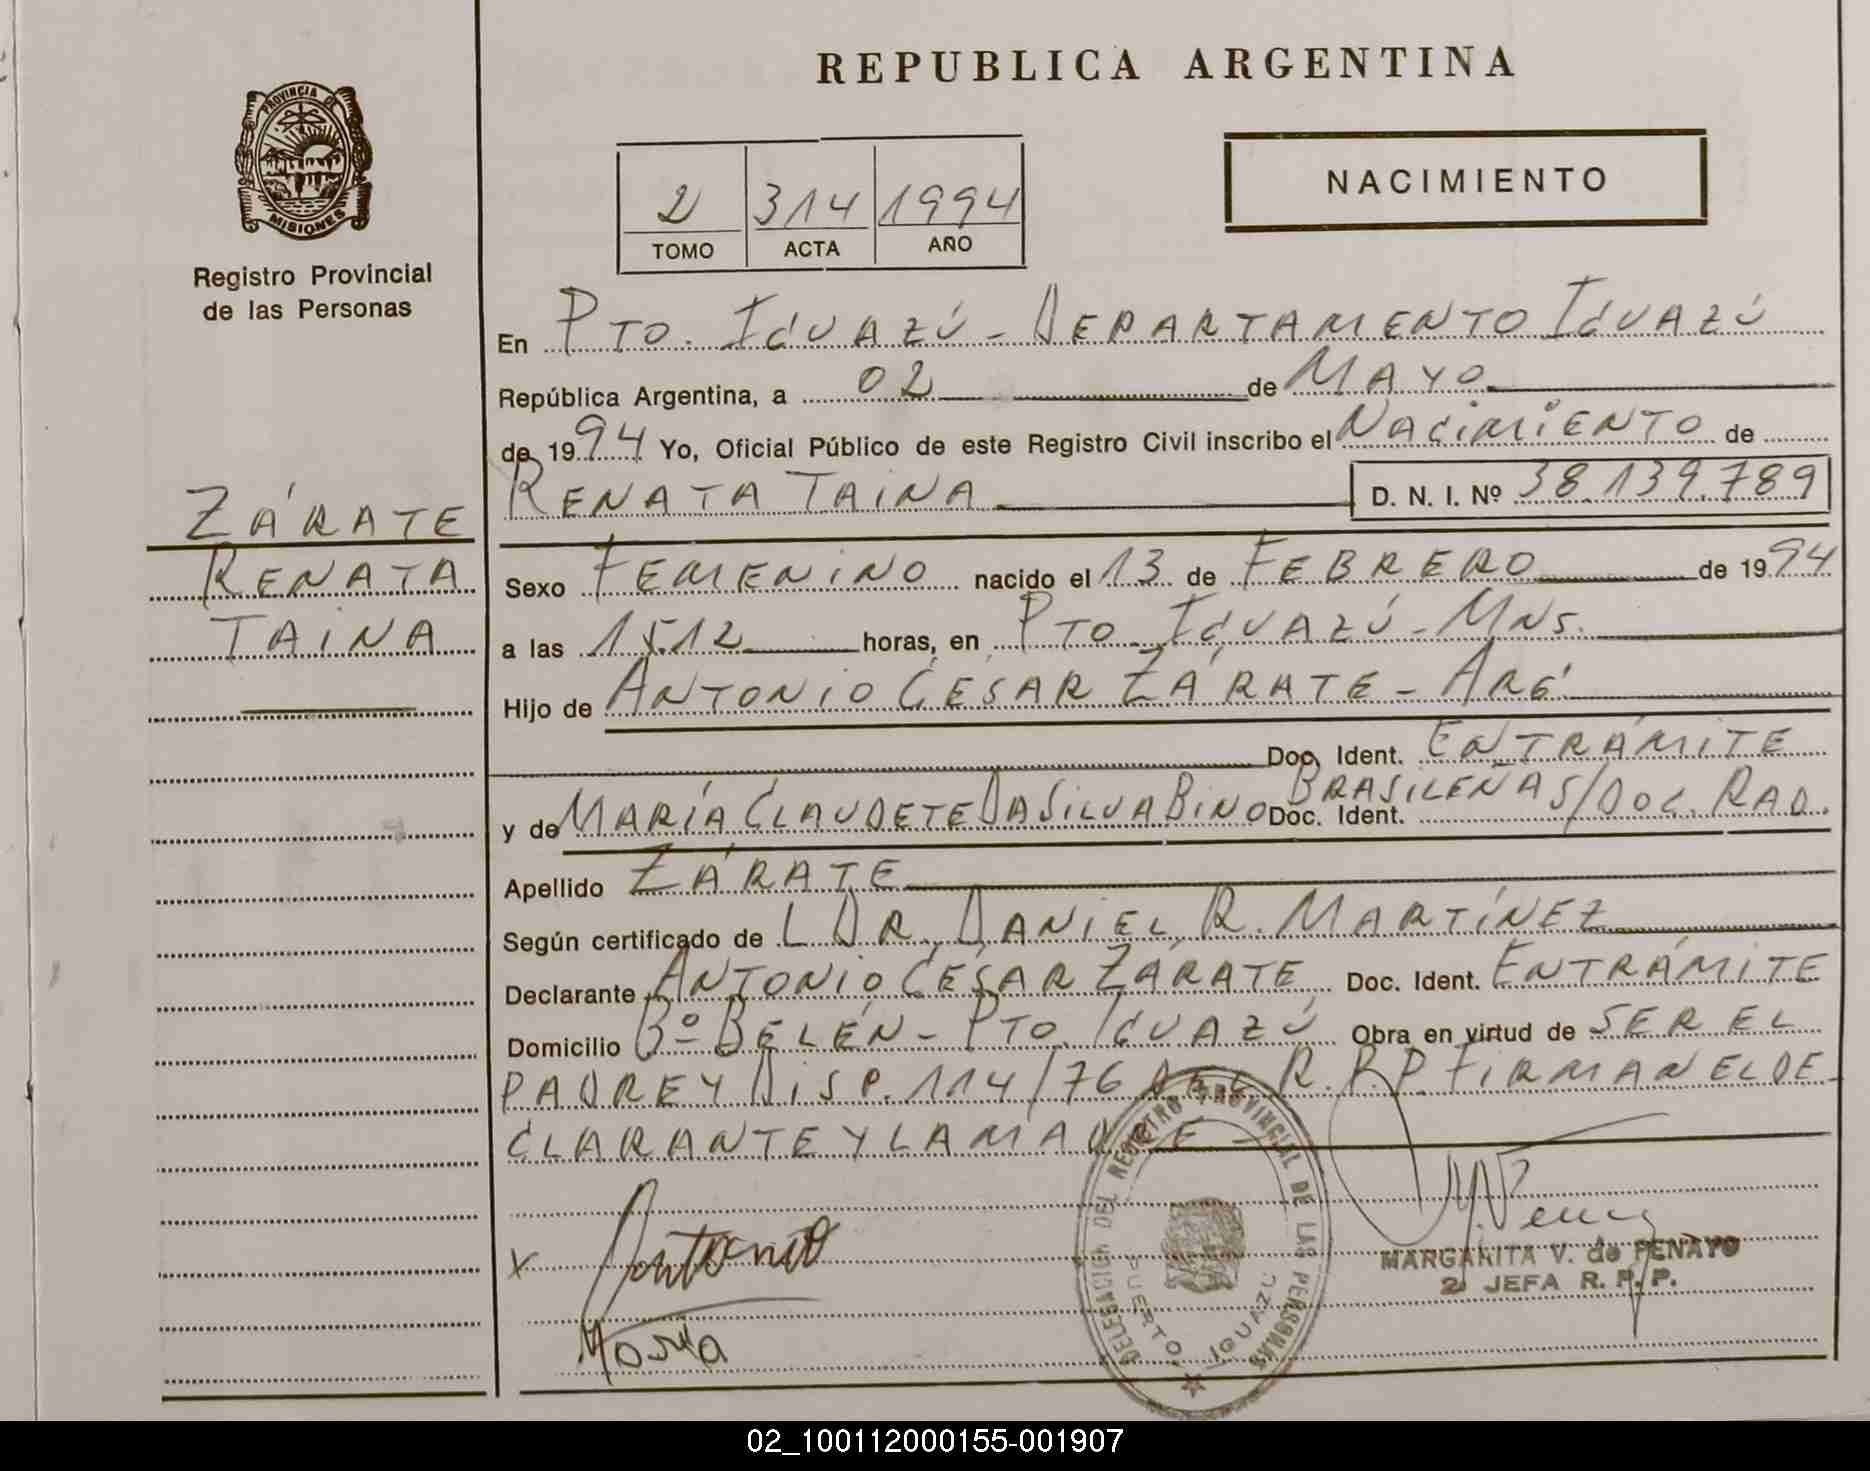 REPUBLICA ARGENTINA
PROVINCIA DE
MISIONES
Registro Provincial
de las Personas
2 314 1994
TOMO ACTA AÑO
NACIMIENTO
En PTO. IGUAZÚ - DEPARTAMENTO IGUAZÚ
República Argentina, a 02 de MAYO
de 1994 Yo, Oficial Público de este Registro Civil inscribo el NACIMIENTO de
RENATA TAINA D. N. I. Nº 38.139.789
ZÁRATE
RENATA
TAINA
Sexo FEMENINO nacido el 13 de FEBRERO de 1994
a las 15.12 horas, en PTO. IGUAZÚ - MNS.
Hijo de ANTONIO CÉSAR ZÁRATE - ARG.
Doc. Ident. EN TRÁMITE
y de MARÍA CLAUDETE DA SILVA BINO Doc. Ident. BRASILEÑAS/DOC. RAD.
Apellido ZÁRATE
Según certificado de L DR. DANIEL R. MARTÍNEZ
Declarante ANTONIO CÉSAR ZÁRATE Doc. Ident. EN TRÁMITE
Domicilio Bº BELÉN - PTO. IGUAZÚ Obra en virtud de SER EL
PADRE Y DISP. 114/76 DEL R.P.P. FIRMAN EL DE-
CLARANTE Y LA MADRE -
DELEGACION DEL REGISTRO PROVINCIAL DE LAS PERSONAS
PUERTO IGUAZU
x Antonio
María
MARGARITA V. de PENAYO
2 JEFA R. P. P.
02_100112000155-001907